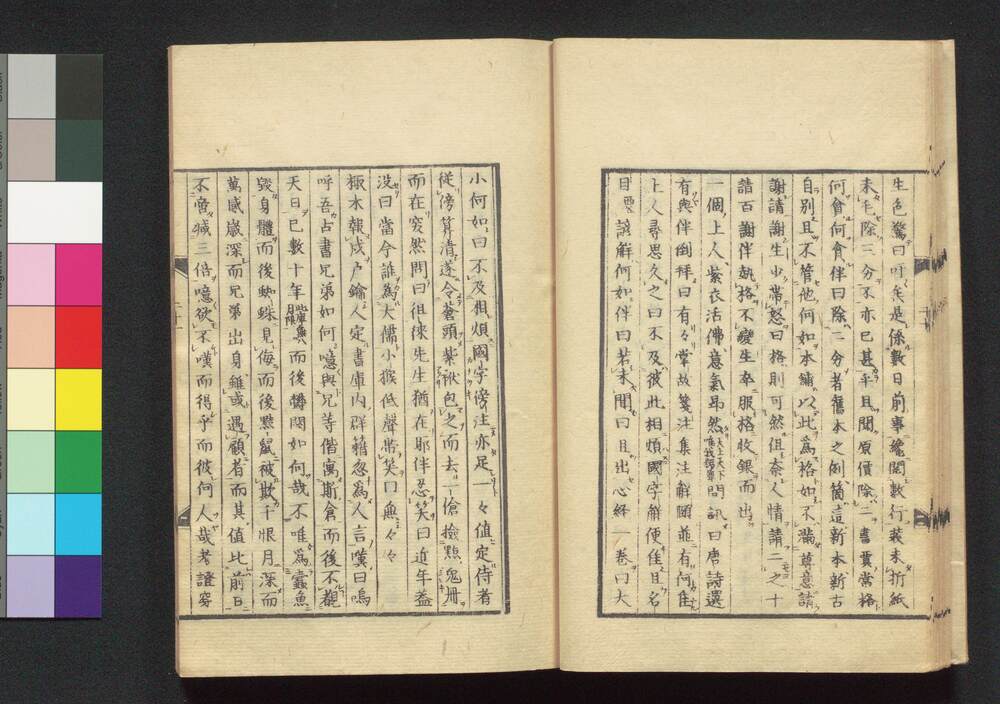 生色驚曰吁矣是係數日前事纔閱數行義未折紙
未毛除三分不亦已甚乎且聞原價除二書賈常格
何會何貪伴曰除二分者舊本之例箇這新本新古
自別且不管他何如本鋪以此爲格如不滿尊意請
謝請謝生少帶怒曰格則可然但奈人情請二之十
請百謝伴執格不變生卒服格收銀而出
一個上人紫衣活佛意氣昻然天上天下唯我獨尊問訊曰唐詩選
有與伴倒拜曰有々掌故箋注集注解頤並有何隹
上人尋思久之曰不及彼此相煩國字解便隹且名
目 諺解何如伴曰若未聞曰且出心經一卷曰大
小何如曰不及相煩國字傍注亦足一々値定侍者
從傍算清遂令蒼頭紫袱包之而去一傖撿㸃兔册
而在突然問曰徂徠先生猶在耶伴忍笑曰近年益
没曰當今誰爲大儒小猴低聲帶笑曰無々々
椒木報戍户鑰人定書庫内群籍忽爲人言嘆曰嗚
呼吾占書兄弟如何噫與兄等偕寓斯倉而後不覩
天日已數十年而後蠹閑如何哉不唯爲蠹魚
毀身體而後蜘蛛見侮而後黠鼠被欺千恨月深而
萬感歳深而兄弟出身雖或遇顧者而其值比前日
不啻减三倍噫欲不嘆而得乎而彼何人哉考證穿